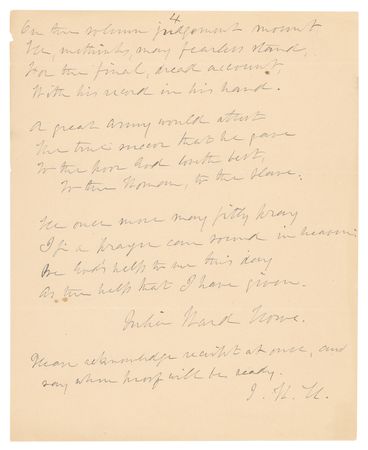 4
On the solemn judgement mount
He, methinks, may fearless stand,
For the final, dread account,
With his record in his hand.
A great army would attest
The true succor that he gave
To the poor God loveth best,
To the Woman, to the slave.
He once more may fitly pray
If a prayer can sound in heaven:
Be God's help to me this day
As the help that I have given.
Julia Ward Howe.
Please acknowledge receipt at once, and
say when proof will be ready.
J. W. H.